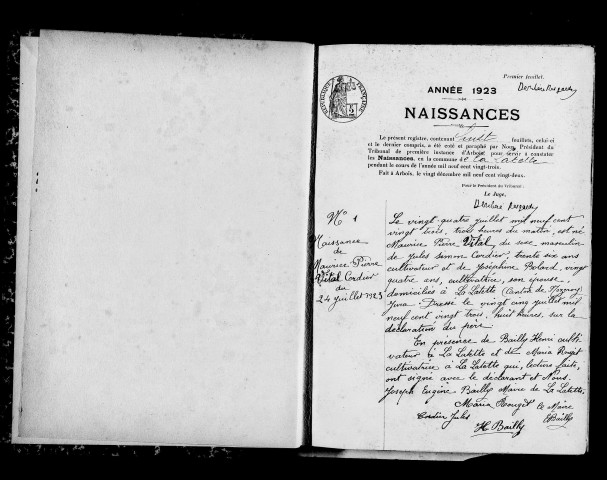 Premier feuillet.
ANNÉE 1923
NAISSANCES
RÉPUBLIQUE FRANÇAISE
Le présent registre, contenant huit feuillets, celui-ci
et le dernier compris, a été coté et paraphé par Nous, Président du
Tribunal de première instance d'Arbois, pour servir à constater
les Naissances, en la commune de La Latette
pendant le cours de l'année mil neuf cent vingt-trois.
Fait à Arbois, le vingt décembre mil neuf cent vingt-deux.
Pour le Président du Tribunal:
Le Juge,
N° 1
Naissance
de
Maurice Pierre
Vital Cordier
du
24 juillet 1923
Le vingt-quatre juillet mil neuf cent
vingt trois, trois heures du matin, est né
Maurice Pierre Vital, du sexe masculin
de Jules Simon Cordier, trente six ans
cultivateur et de Joséphine Rolard, vingt
quatre ans, cultivatrice, son épouse,
domiciliés à La Latette (Canton de Nozeroy)
Jura. Dressé le vingt cinq juillet mil
neuf cent vingt trois, huit heures, sur la
déclaration du père.
En présence de Bailly Henri culti
vateur à La Latette et de Maria Rouget
cultivatrice à La Latette qui, lecture faite,
ont signé avec le déclarant et Nous,
Joseph Eugène Bailly Maire de La Latette.
Maria Rouget Le Maire
Cordier Jules EBailly
H Bailly